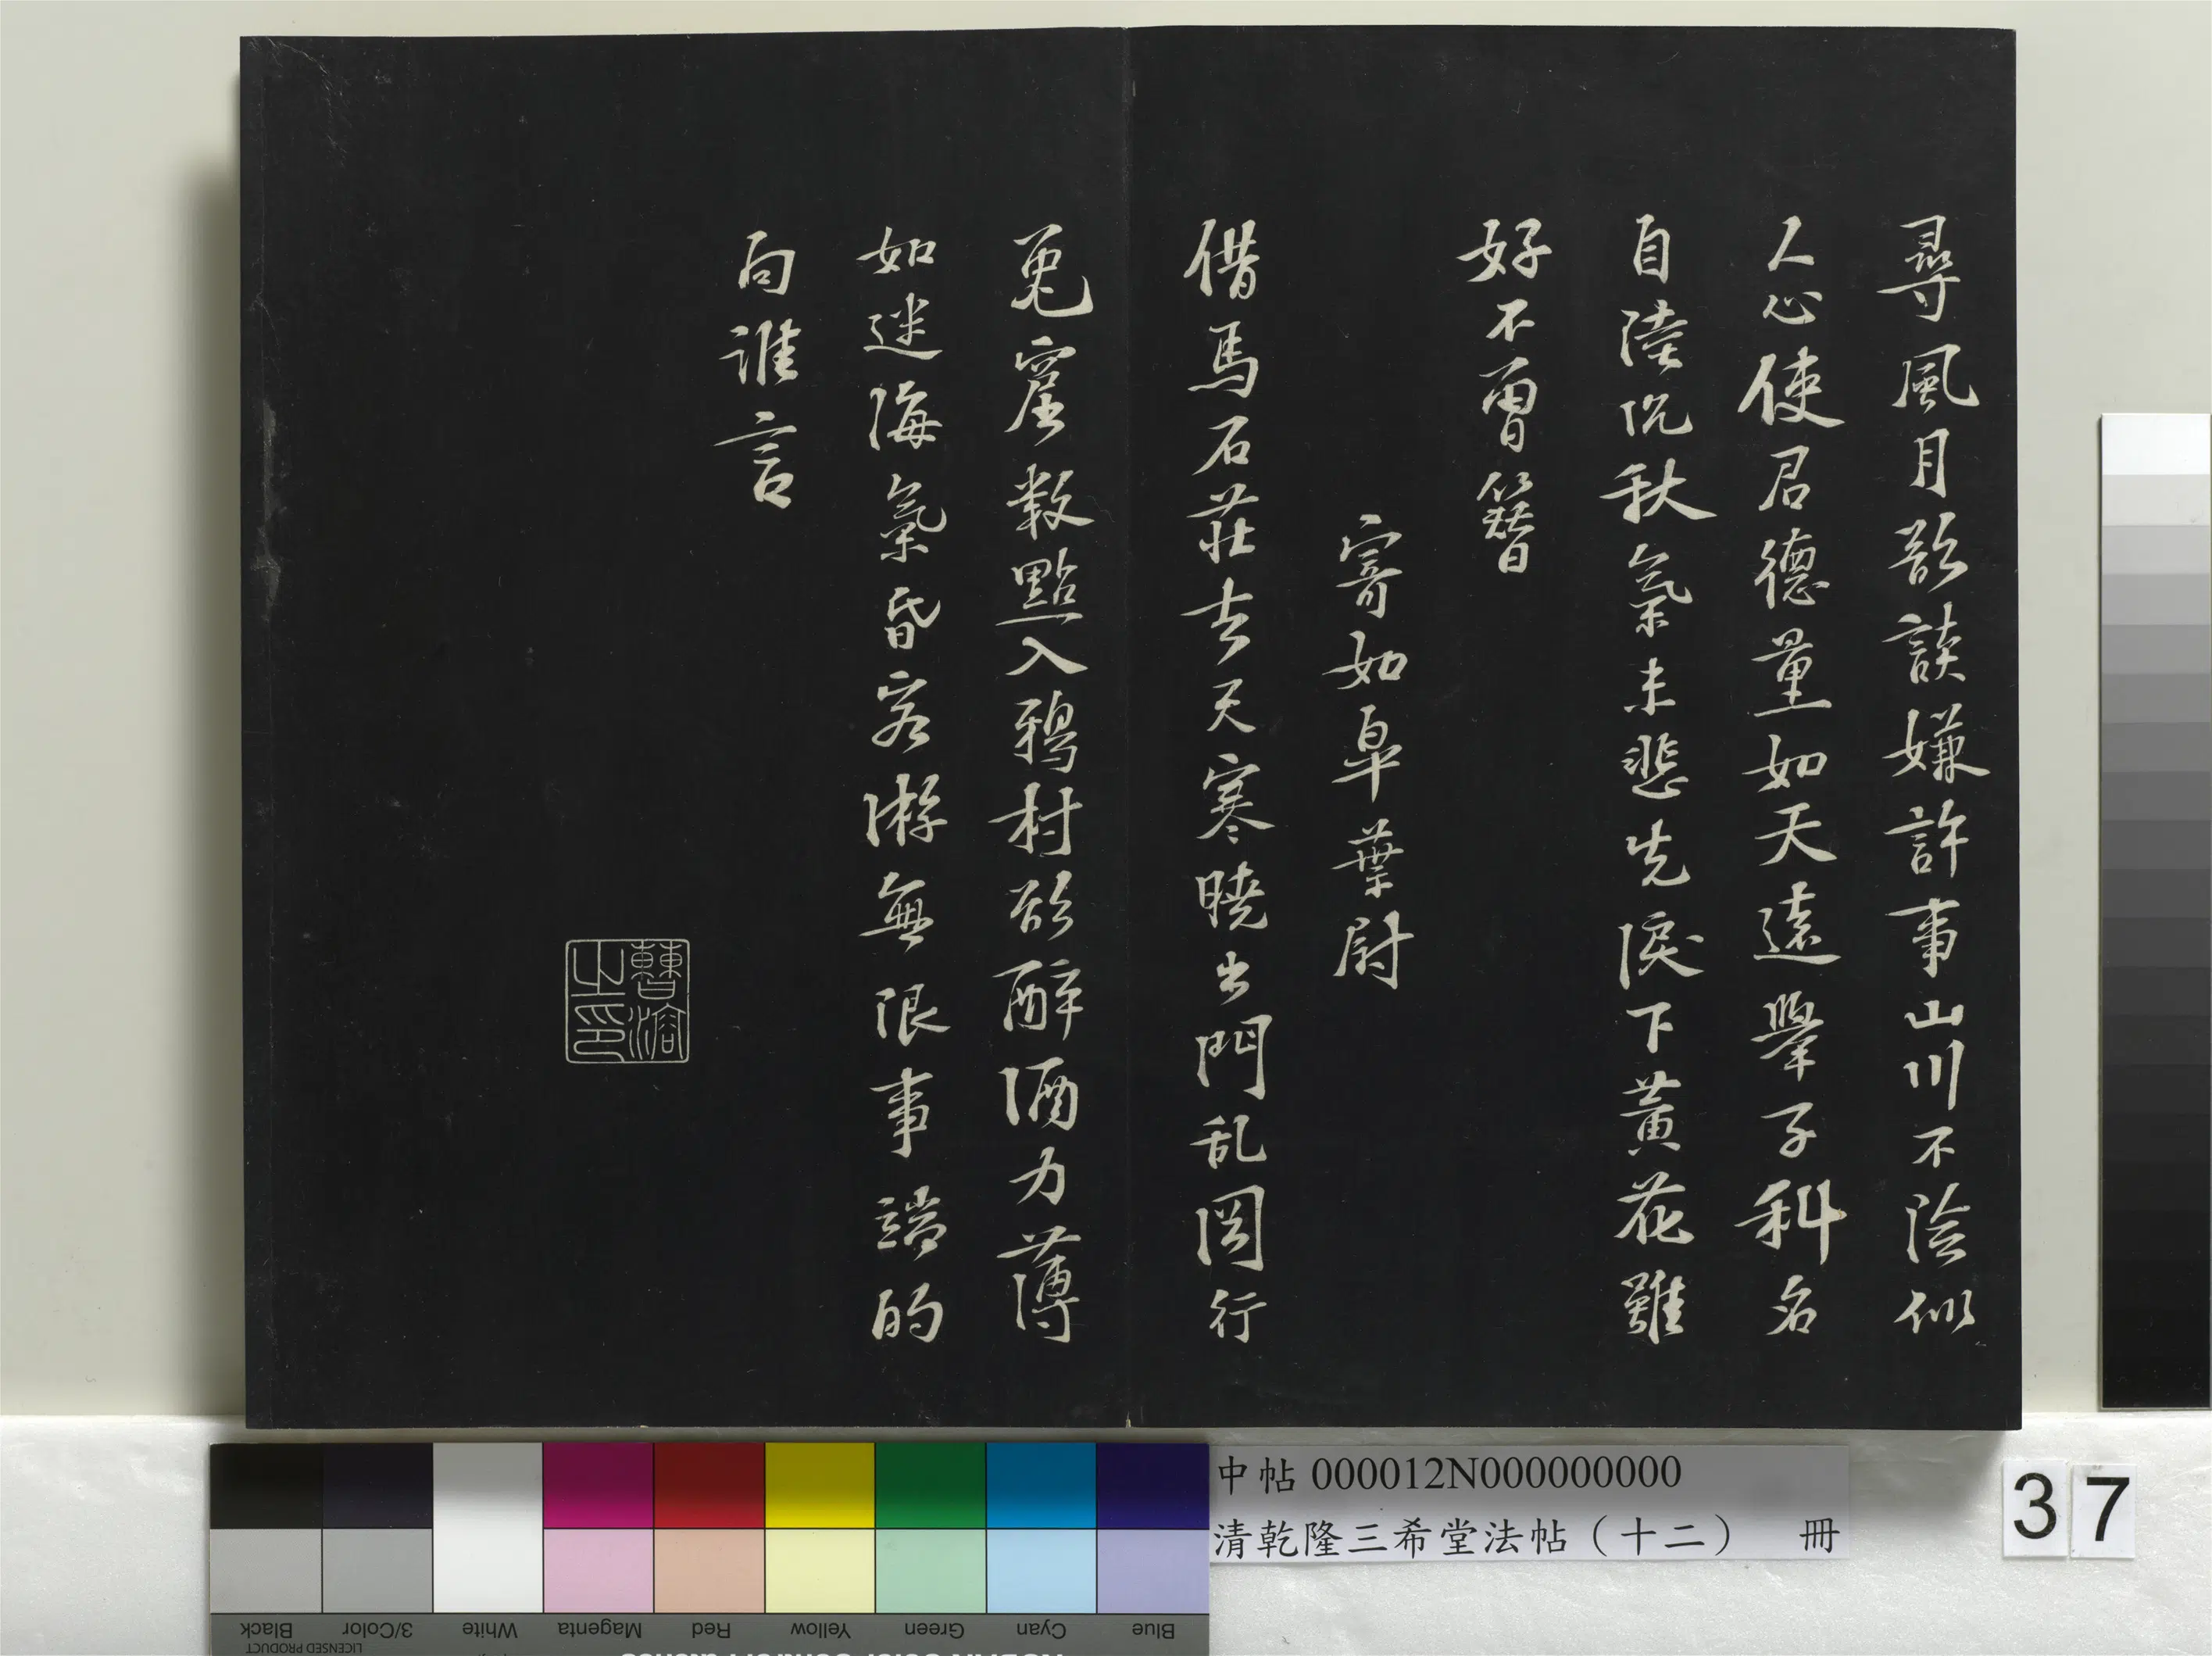 尋風月欲談嫌許事山川不險似
人心使君德量如天遠舉子科名
自陸沉秋氣未悲先淚下黃花雖
好不曾簪
寄如皐葉尉
借馬石莊去天寒曉出門乱岡行
兔窟数點入鴉村欲醉酒力薄
如迷海氣昏客游無限事端的
向誰言
曹溶之印
中帖 000012N000000000
清乾隆三希堂法帖（十二） 冊
37
Blue Cyan Green Yellow Red Magenta White 3/Color Black
LICENSED PRODUCT